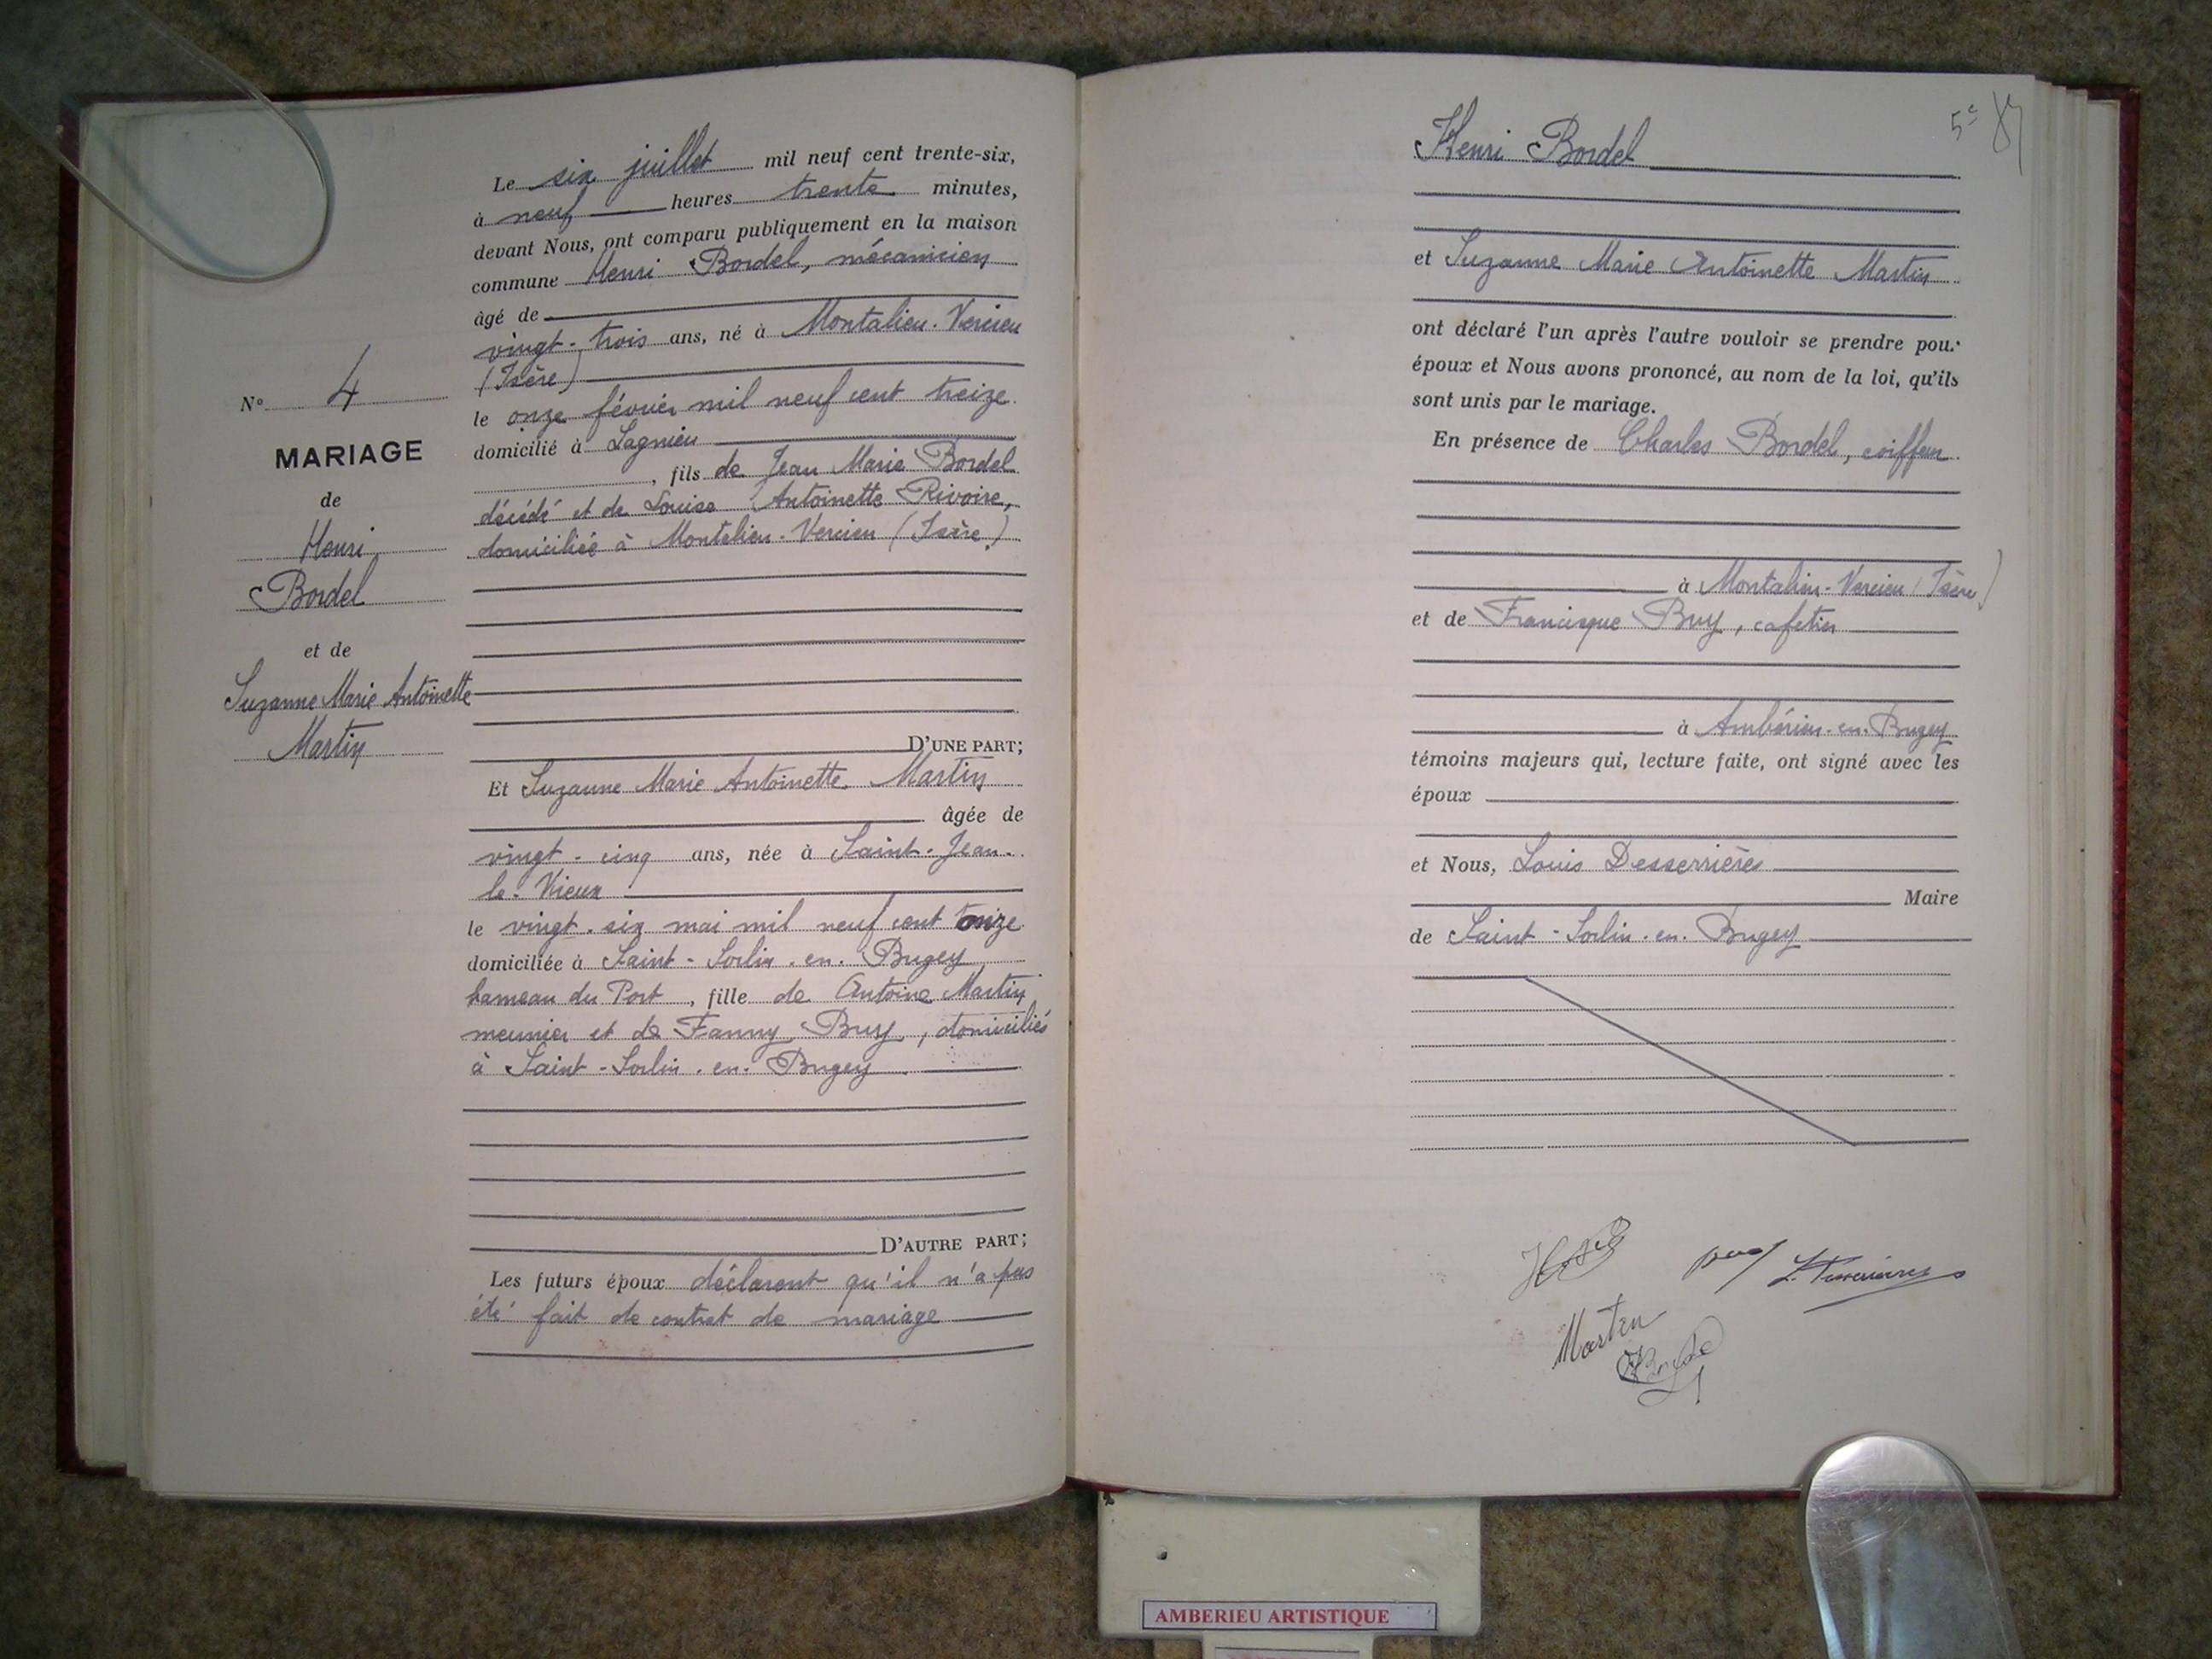 Le six juillet mil neuf cent trente-six,
à neuf heures trente minutes,
devant Nous, ont comparu publiquement en la maison
commune Henri Bordel, mécanicien
âgé de
vingt-trois ans, né à Montalieu-Vercieu
(Isère)
le onze février mil neuf cent treize
domicilié à Lagnieu
, fils de Jean Marie Bordel
décédé et de Louise Antoinette Rivoire,
domiciliée à Montalieu-Vercieu (Isère)
D'UNE PART;
Et Suzanne Marie Antoinette Martin
âgée de
vingt-cinq ans, née à Saint-Jean-
le-Vieux
le vingt-six mai mil neuf cent onze
domiciliée à Saint-Sorlin-en-Bugey
hameau du Port, fille de Antoine Martin
meunier et de Fanny Buy, domiciliés
à Saint-Sorlin-en-Bugey
D'AUTRE PART;
Les futurs époux déclarent qu'il n'a pas
été fait de contrat de mariage
N° 4
MARIAGE
de
Henri
Bordel
et de
Suzanne Marie Antoinette
Martin
5e
Henri Bordel
et Suzanne Marie Antoinette Martin
ont déclaré l'un après l'autre vouloir se prendre pour
époux et Nous avons prononcé, au nom de la loi, qu'ils
sont unis par le mariage.
En présence de Charles Bordel, coiffeur
à Montalieu-Vercieu (Isère)
et de Francisque Buy, cafetier
à Ambérieu-en-Bugey
témoins majeurs qui, lecture faite, ont signé avec les
époux
et Nous, Louis Desserrières
Maire
de Saint-Sorlin-en-Bugey
Martin
AMBERIEU ARTISTIQUE